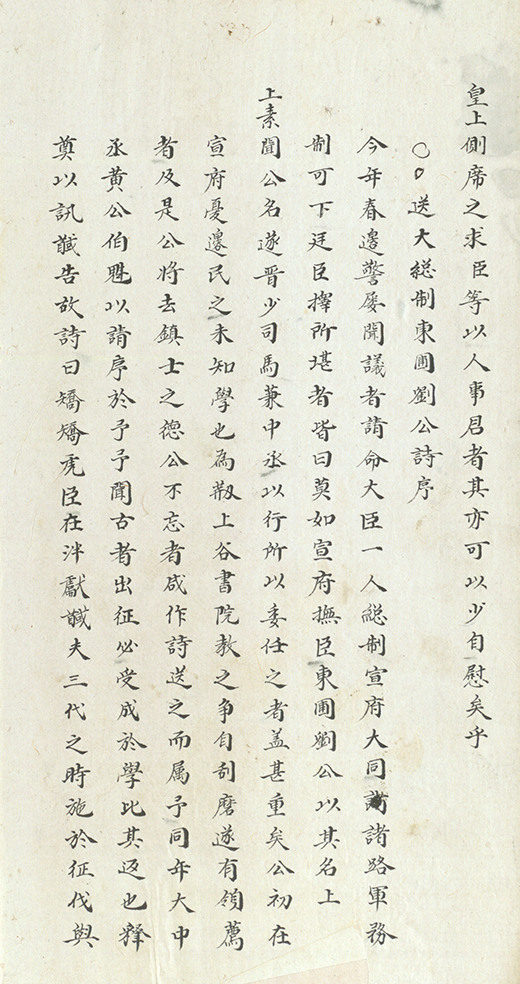 皇上側席之求臣等以人事君者其亦可以少自慰矣乎
○○送大総制東圃劉公詩序
今年春邊警屡聞議者請命大臣一人総制宣府大同諸路軍務
制可下廷臣擇所堪者皆曰莫如宣府撫臣東圃劉公以其名上
上素聞公名遂晋少司馬蒹中丞以行所以委任之者盖甚重矣公初在
宣府憂邊民之未知學也為剏上谷書院教之争自刮磨遂有領薦
者及是公將去鎮士之德公不忘者咸作詩送之而属予同年大中
丞黄公伯魁以請序於予予聞古者出征必受成於學比其返也釋
奠以訊馘告故詩曰矯矯虎臣在泮獻馘夫三代之時施於征伐與